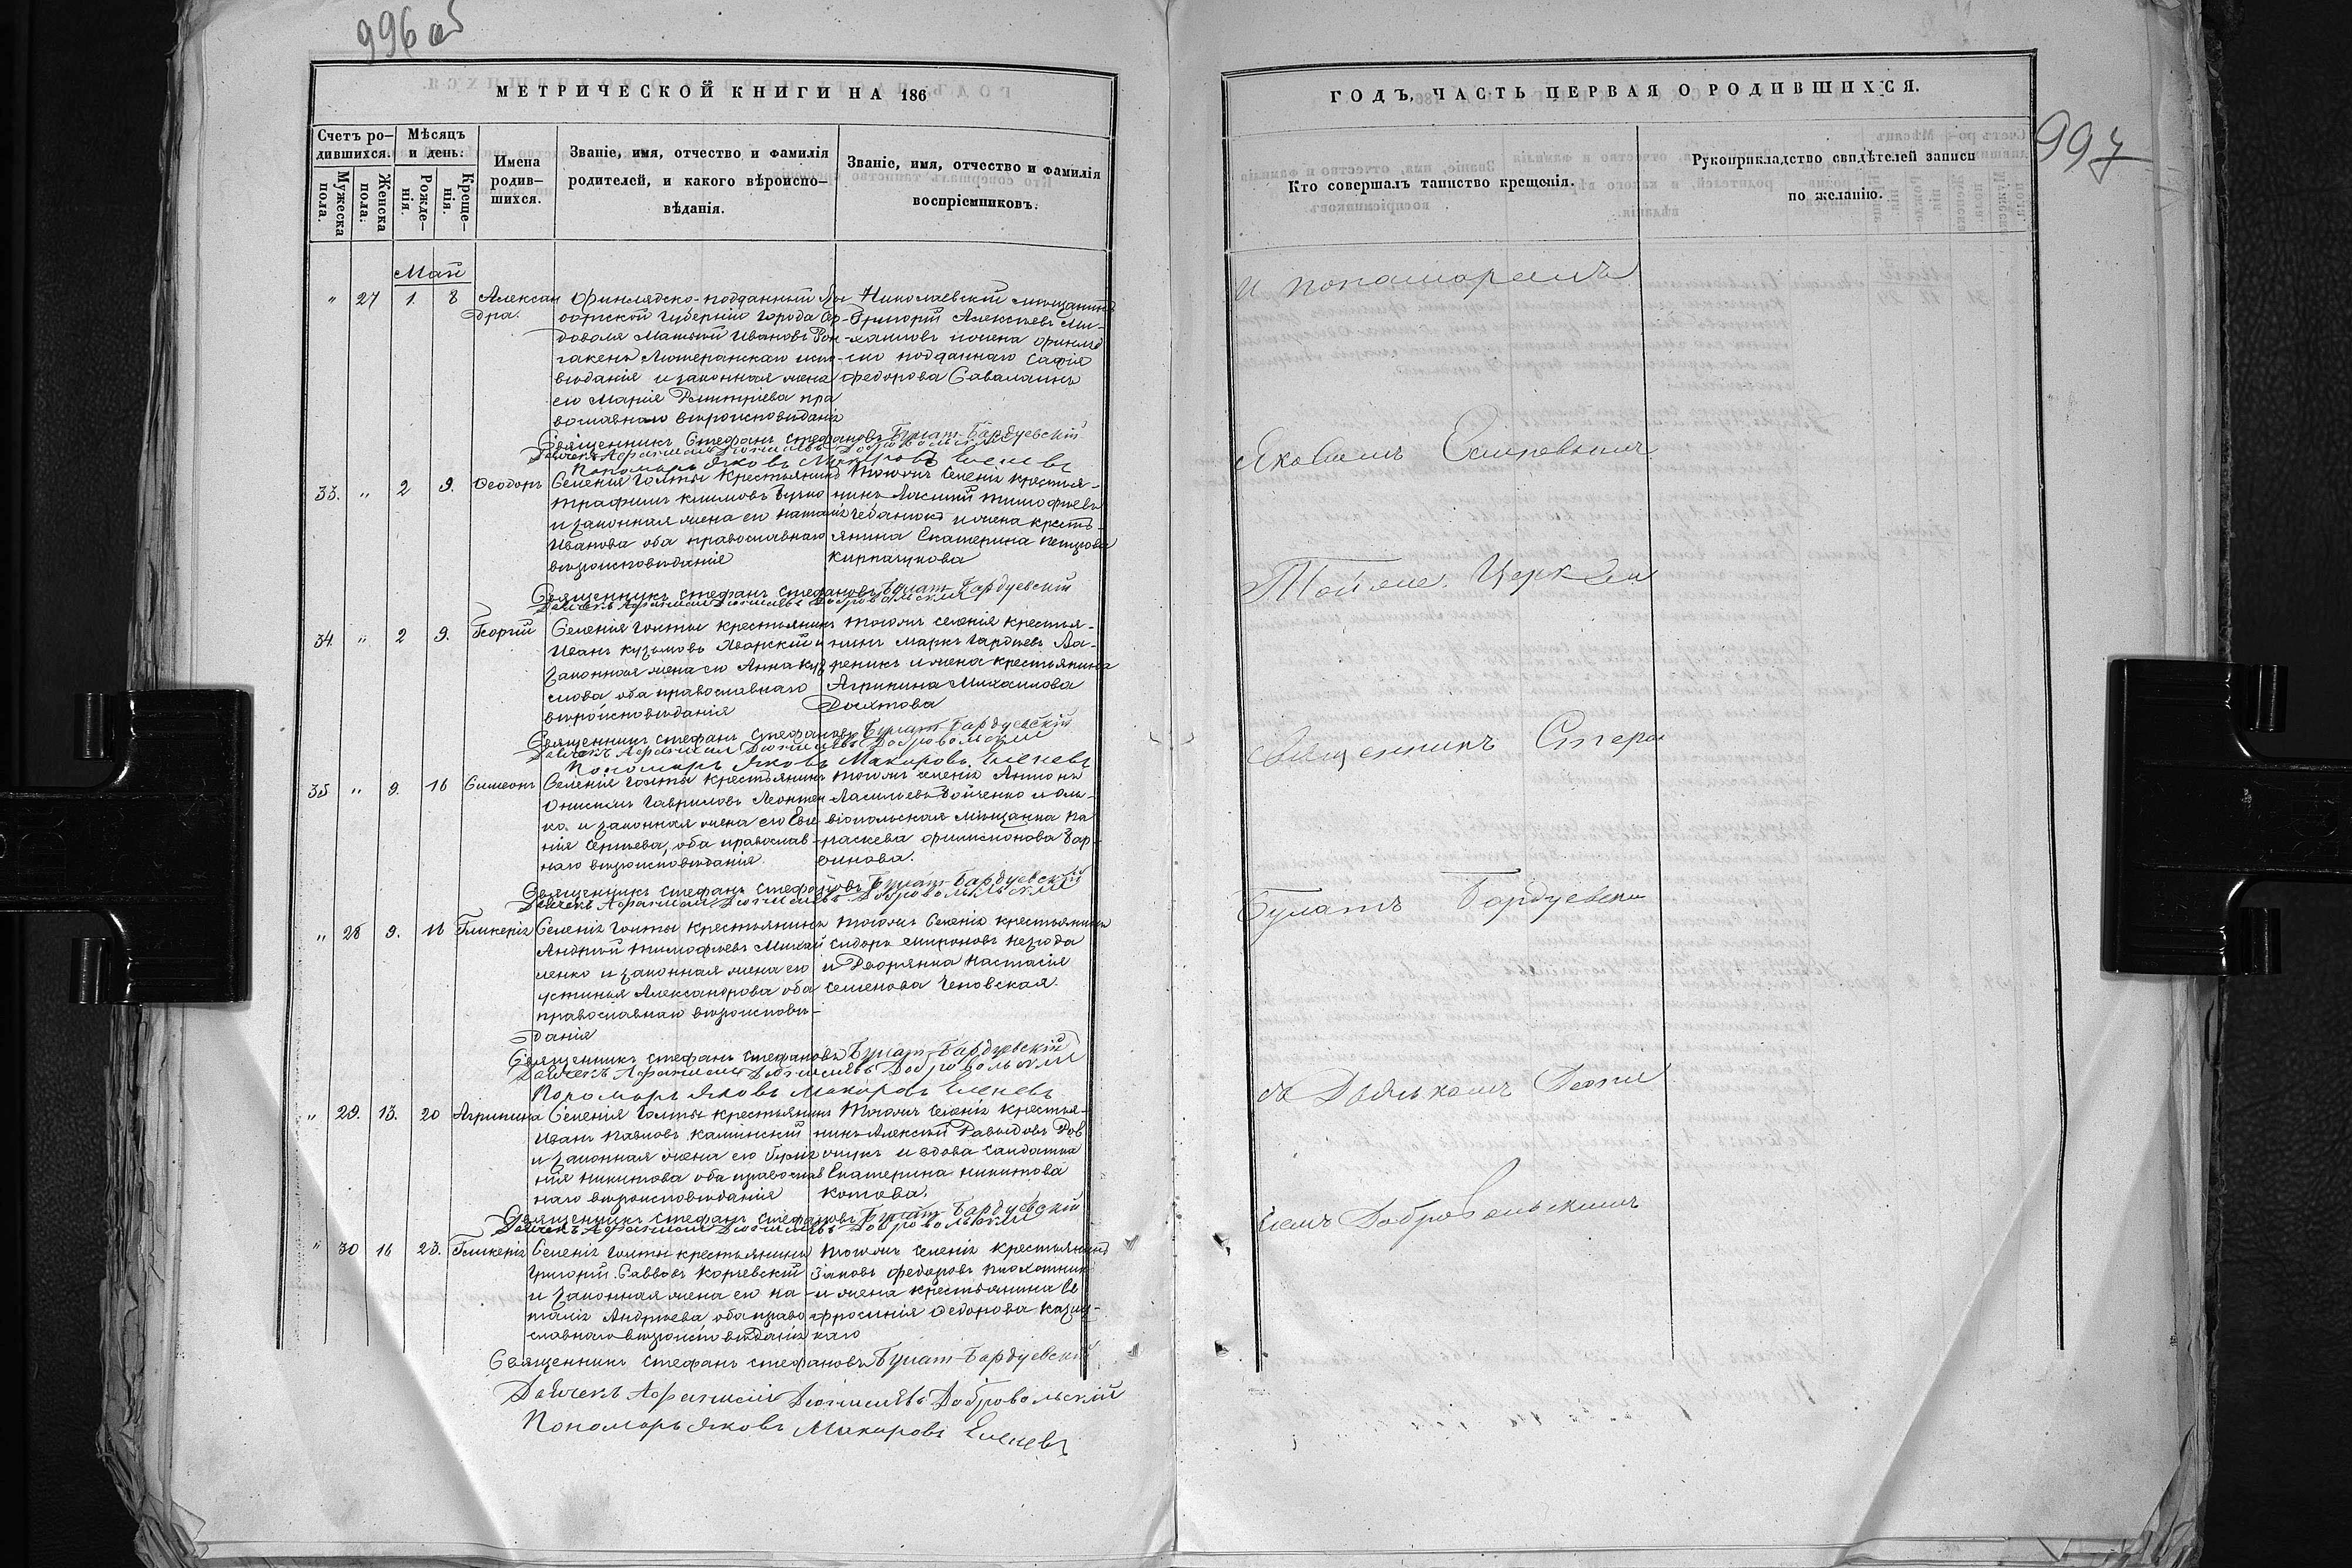 996 об
МЕТРИЧЕСКОЙ КНИГИ НА 186
Счетъ ро-
дившихся.
Мѣсяцъ
и день:
Мужеска
пола.
Женска
пола:
Рожде-
нія.
Креще-
нія.
Имена
родив-
шихся.
Званіе, имя, отчество и фамилія
родителей, и какого вѣроиспо-
вѣданія.
Званіе, имя, отчество и фамилія
воспріемниковъ.
Май
" 27 1. 8 Алексан
дра.
Финлядско-подданный Вы
боргской Губерніи города Сер-
доволя Матвѣй Ивановъ
Лютеранскаго испо-
вѣданія и законная жена
его Марія Дмитріева пра
вославнаго вѣроисповѣданія
Николаевскій мѣщанинъ
Григорій Алексѣевъ Ми-
хаиловъ и жена финляд
ско подданнаго Софія
Федорова
Священникъ Стефанъ Стефановъ Булатъ-Бардуевскій
Дьячекъ Афанасій Добровольскій
Пономарь Яковъ Макаровъ Еленевъ
33. " 2 9. Ѳеодоръ
Селенія Голты Крестьянинъ
Трафимъ Климовъ
и законная жена его Наталія
Иванова оба православнаго
вѣроисповѣданія
Тогожъ Селенія крестья-
нинъ Василій Тимофѣевъ
и жена кресть-
янина Екатерина Петрова
Кирпачукова
Священникъ Стефанъ Стефановъ Булатъ-Бардуевскій
Дьячекъ Афанасій Добровольскій
34. " 2 9. Георгій
Селенія Голты крестьянинъ
Иванъ Кузьмовъ Яворскій и
законная жена его Анна
оба православнаго
вѣроисповѣданія
Тогожъ селенія крестья-
нинъ Маркъ Гордѣевъ Ла-
реникъ и жена крестьянина
Агрипина Михаилова
Священникъ Стефанъ Стефановъ Булатъ-Бардуевскій
Дьячекъ Афанасій Добровольскій
Пономарь Яковъ Макаровъ Еленевъ
35 " 9. 16 Симеонъ
Селенія Голты Крестьянинъ
Онисимъ Гавриловъ Леонтен
ко и законная жена его Евге
нія Сергѣева, оба православ-
наго вѣроисповѣданія.
Тогожъ селенія Антонъ
Васильевъ Бойченко и Оль-
віопольская мѣщанка Па
раскева Филимонова
Священникъ Стефанъ Стефановъ Булатъ-Бардуевскій
Дьячекъ Афанасій Добровольскій
" 28 9. 16 Гликерія
Селенія Голты Крестьянинъ
Андрѣй Тимофѣевъ Михай
ленко и законная жена его
Устинья Александрова оба
православнаго вѣроисповѣ-
данія
Тогожъ Селенія крестьянинъ
Сидоръ Мироновъ
и Дворянка Настасія
Семенова Чеповская.
Священникъ Стефанъ Стефановъ Булатъ-Бардуевскій
Дьячекъ Афанасій Добровольскій
Пономарь Яковъ Макаровъ Еленевъ
" 29. 13. 20 Агрипина
Селенія Голты крестьянинъ
Иванъ Павловъ Каминскій
и законная жена его
Никитова оба православ
наго вѣроисповѣданія
Тогожъ Селенія крестья-
нинъ Алексѣй Давыдовъ
и вдова солдатка
Екатерина Никитова
Котова.
Священникъ Стефанъ Стефановъ Булатъ-Бардуевскій
Дьячекъ Афанасій Добровольскій
" 30 16 23. Гликерія
Селенія Голты крестьянинъ
Григорій Саввовъ Корчевскій
и законная жена его На-
талія Андрѣева, оба право
славнаго вѣроисповѣданія
Тогожъ селенія крестьянинъ
Іаковъ Федоровъ Плахотник
и жена крестьянина Ев
фросинія Ѳедорова
Священникъ Стефанъ Стефановъ Булатъ-Бардуевскій
Дьячекъ Афанасій Добровольскій
Пономарь Яковъ Макаровъ Еленевъ
997
ГОДЪ, ЧАСТЬ ПЕРВАЯ О РОДИВШИХСЯ.
Кто совершалъ таинство крещенія.
Рукоприкладство свидѣтелей записи
по желанію.
и пономаремъ
Яковомъ Еленевымъ
Тойже Церкви
Священникъ Стефа
Булатъ Бардуевски
съ Дьячкомъ
Добровольскимъ